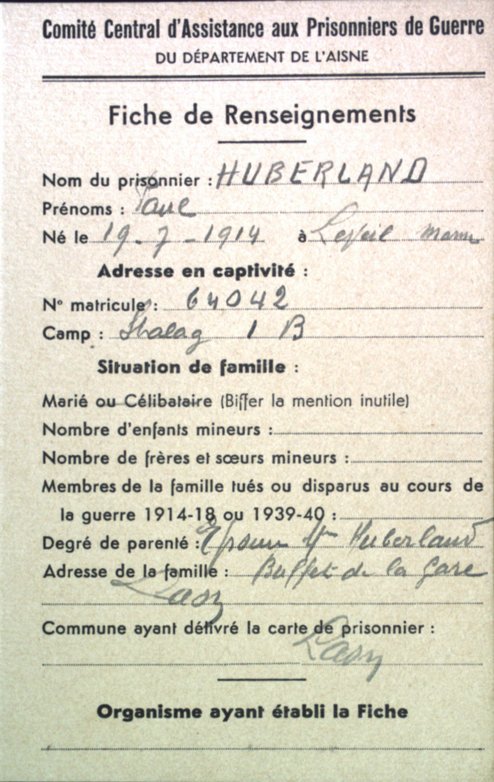 Comité Central d'Assistance aux Prisonniers de Guerre
DU DÉPARTEMENT DE L'AISNE
Fiche de Renseignements
Nom du prisonnier : HUBERLAND
Prénoms : Paul
Né le 19-7-1914 à
Adresse en captivité :
N° matricule : 64042
Camp : Stalag I B
Situation de famille :
Marié ou Célibataire (Biffer la mention inutile)
Nombre d'enfants mineurs :
Nombre de frères et sœurs mineurs :
Membres de la famille tués ou disparus au cours de
la guerre 1914-18 ou 1939-40 :
Degré de parenté : Huberland
Adresse de la famille : Buffet de la Gare
Laon
Commune ayant délivré la carte de prisonnier :
Laon
Organisme ayant établi la Fiche